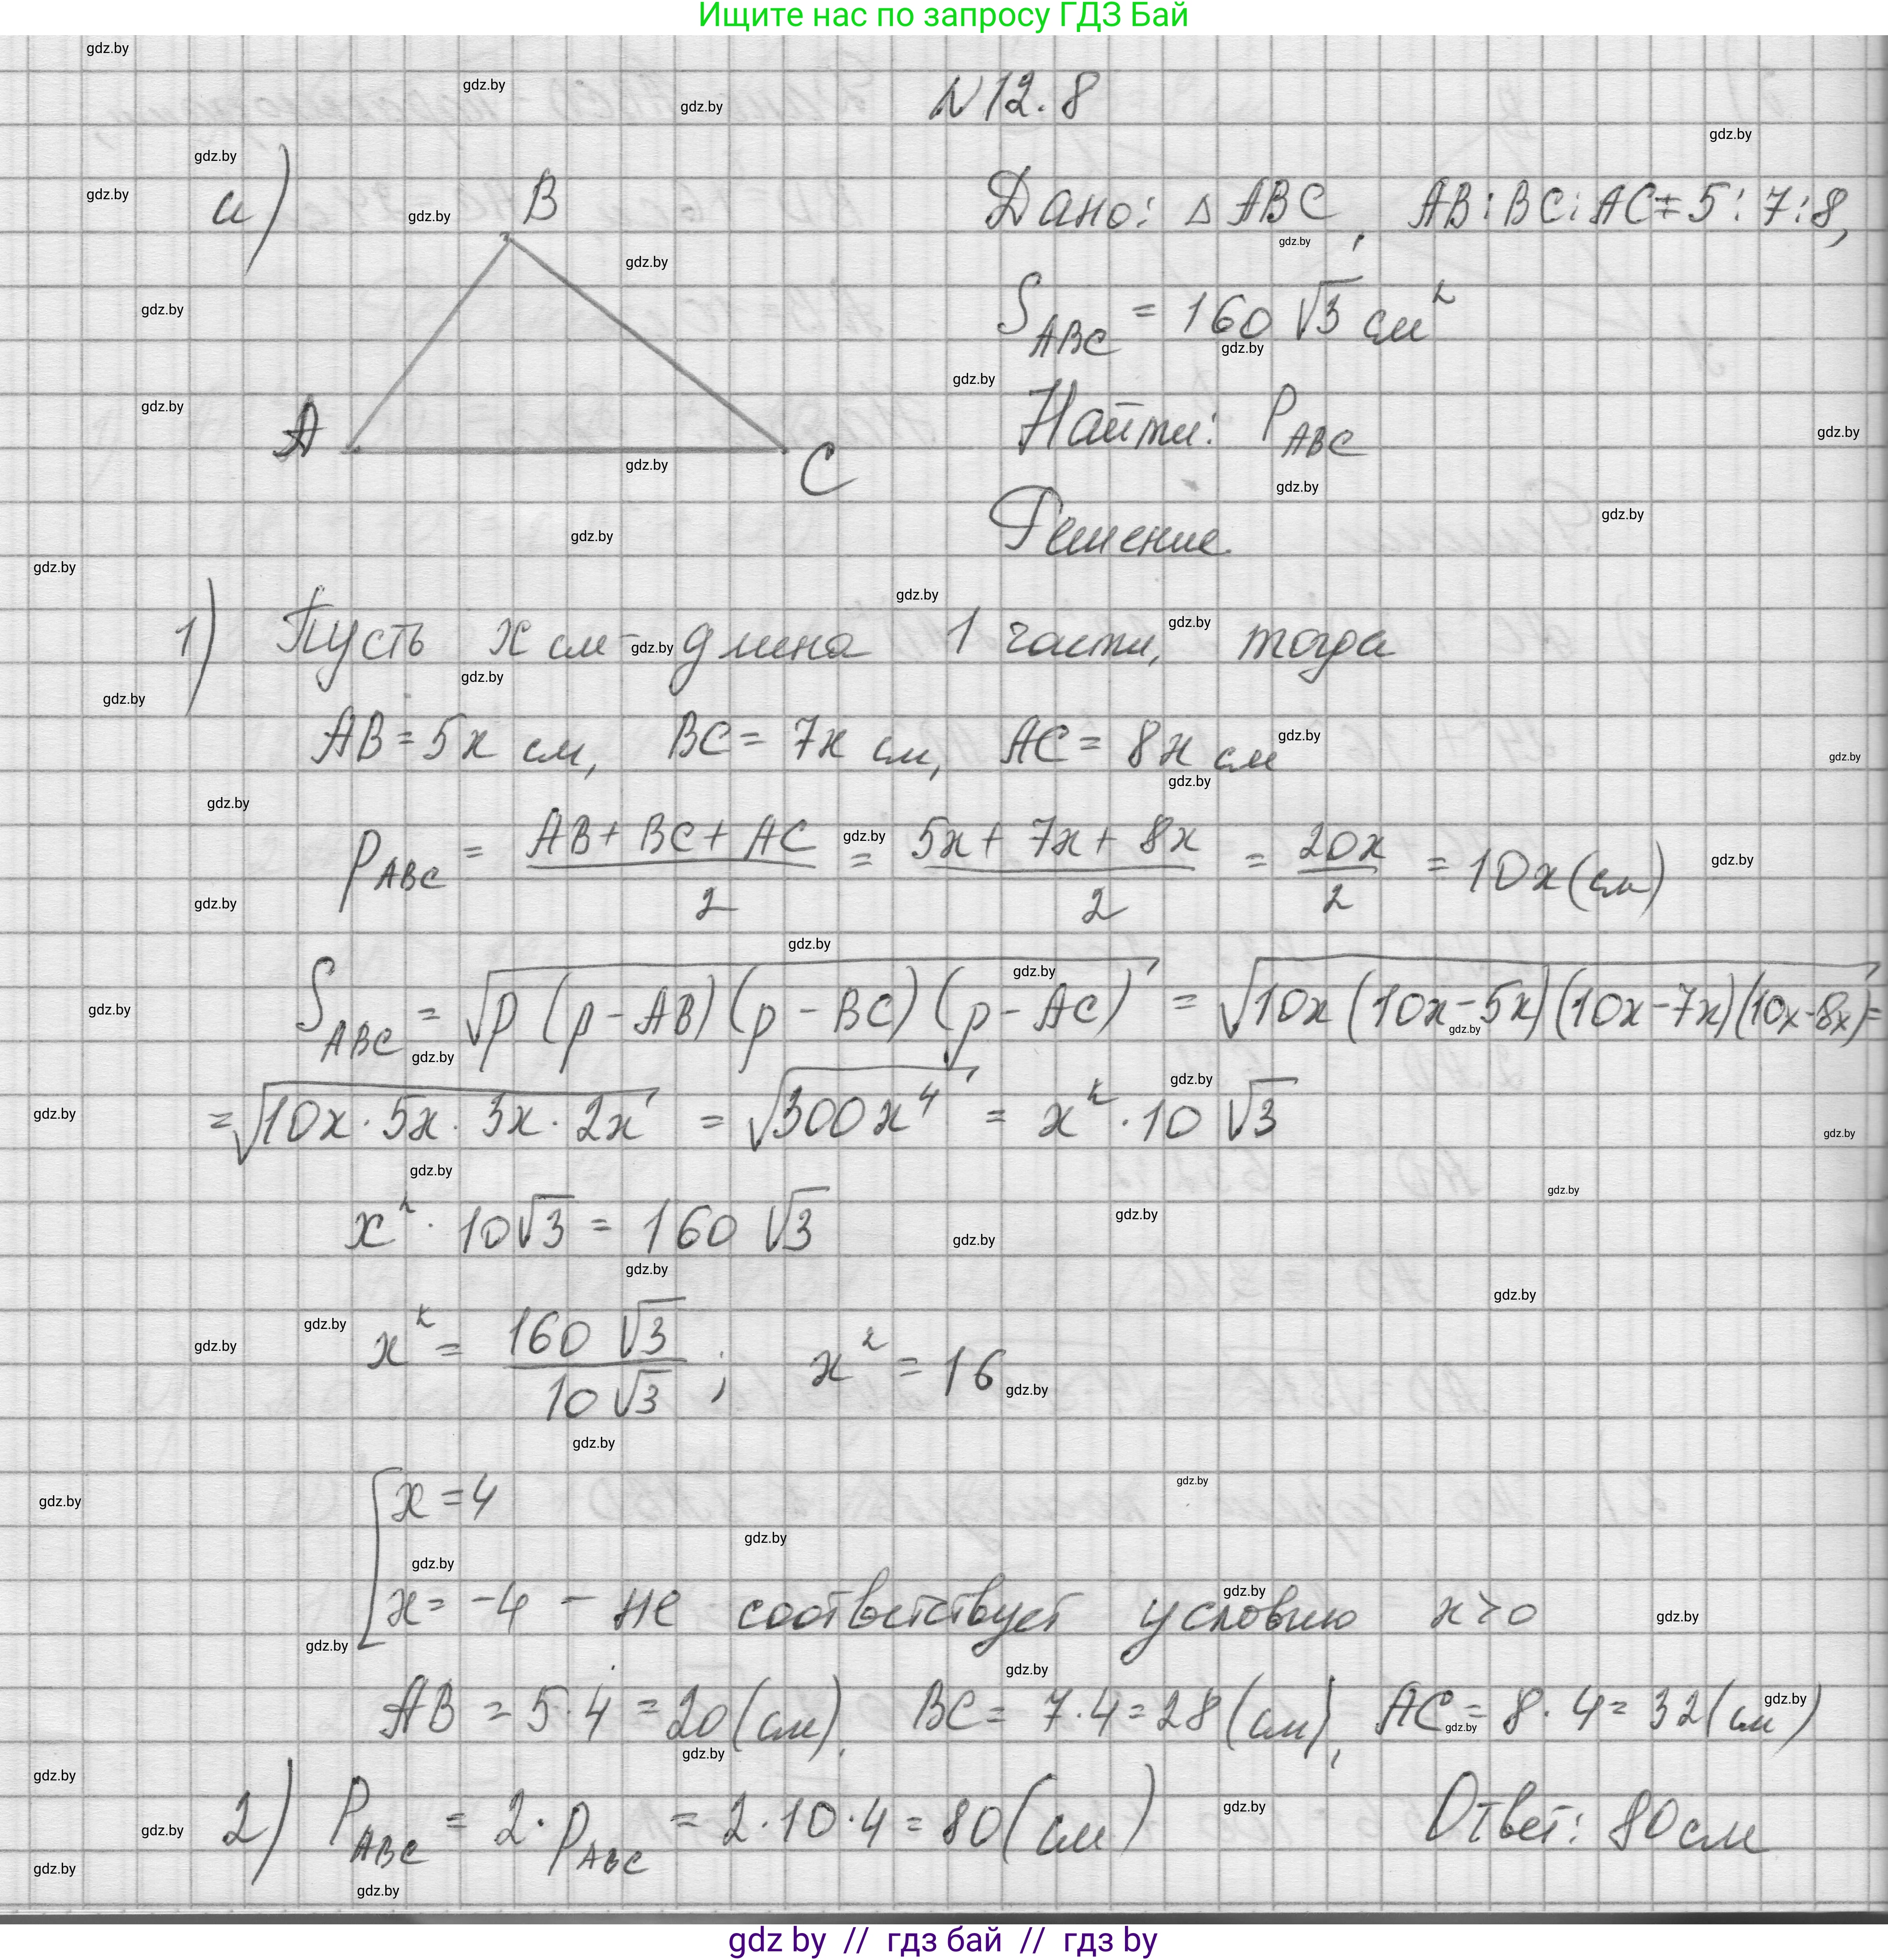 Ищите нас по запросу ГДЗ Бай
N 12.8
а)
B
A
C
Дано: △ ABC, AB:BC:AC = 5:7:8,
S_ABC = 160 √3 см²
Найти: P_ABC
Решение
1) Пусть x см - длина 1 части, тогда
AB = 5x см, BC = 7x см, AC = 8x см
p_ABC = (AB + BC + AC)/2 = (5x + 7x + 8x)/2 = 20x/2 = 10x (см)
S_ABC = √(p (p - AB) (p - BC) (p - AC)) = √(10x (10x - 5x) (10x - 7x) (10x - 8x)) =
= √(10x · 5x · 3x · 2x) = √(300x⁴) = x² · 10 √3
x² · 10√3 = 160 √3
x² = 160 √3 / 10 √3 ; x² = 16
[ x = 4
x = -4 - не соответствует условию x > 0
AB = 5·4 = 20 (см), BC = 7·4 = 28 (см), AC = 8·4 = 32 (см)
2) P_ABC = 2 · p_ABC = 2·10·4 = 80 (см) Ответ: 80 см
gdz by // гдз бай // гдз by
gdz.by